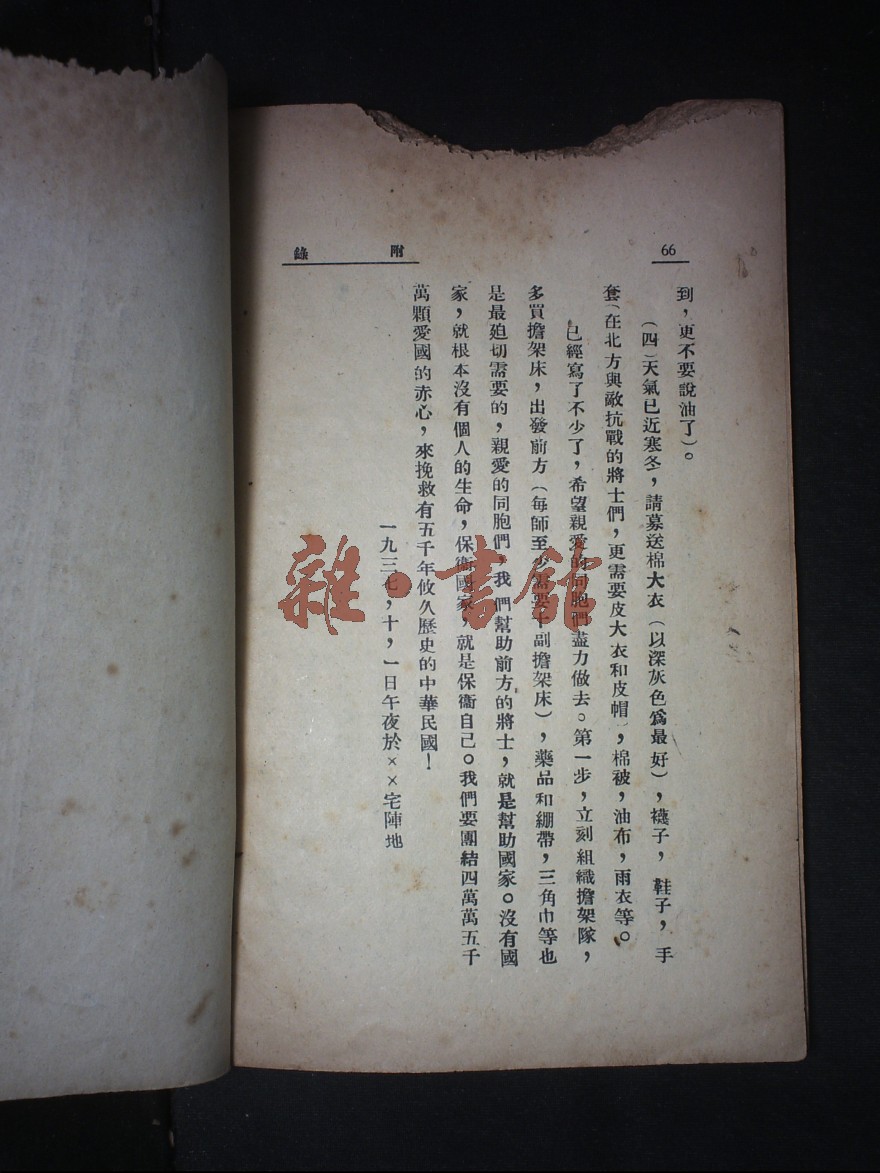 66
附錄
到，更不要說油了）。
（四）天氣已近寒冬，請募送棉大衣（以深灰色爲最好），襪子，鞋子，手
套（在北方與敵抗戰的將士們，更需要皮大衣和皮帽），棉被，油布，雨衣等。
已經寫了不少了，希望親愛的同胞們盡力做去。第一步，立刻組織擔架隊，
多買擔架床，出發前方（每師至少需要千副擔架床），藥品和綳帶，三角巾等也
是最廹切需要的，親愛的同胞們，我們幫助前方的將士，就是幫助國家。沒有國
家，就根本沒有個人的生命，保衞國家，就是保衞自己。我們要團結四萬萬五千
萬顆愛國的赤心，來挽救有五千年攸久歷史的中華民國！
一九三七，十，一日午夜於××宅陣地
雜·書館